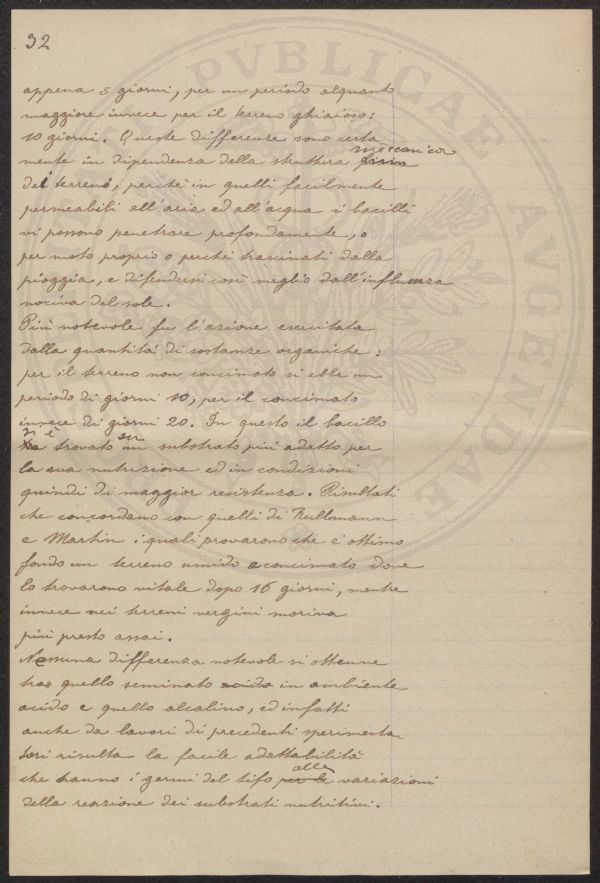 32
appena 5 giorni, per un periodo alquanto
maggiore invece per il terreno ghiaioso:
10 giorni. Queste differenze sono certa
mente in dipendenza della struttura meccanica
del terreno, perchè in quelli facilmente
permeabili all'aria ed all'acqua i bacilli
vi possono penetrare profondamente, o
per moto proprio o perchè trascinati dalla
pioggia, e difendersi così meglio dall'influenza
nociva del sole.
Più notevole fu l'azione esercitata
dalla quantità di sostanze organiche:
per il terreno non concimato si ebbe un
periodo di giorni 10, per il concimato
invece di giorni 20. In questo il bacillo
si è trovato su un substrato più adatto per
la sua nutrizione ed in condizioni
quindi di maggior resistenza. Risultati
che concordano con quelli di Rullmann
e Martin i quali provarono che è ottimo
fondo un terreno umido concimato dove
lo trovarono vitale dopo 16 giorni, mentre
invece nei terreni vergini moriva
più presto assai.
Nessuna differenza notevole si ottenne
tra quello seminato acido in ambiente
acido e quello alcalino, ed infatti
anche da lavori di precedenti sperimenta
tori risulta la facile adattabilità
che hanno i germi del tifo per le alle variazioni
della reazione dei substrati nutritivi.
PVBLICAE AVGENDAE